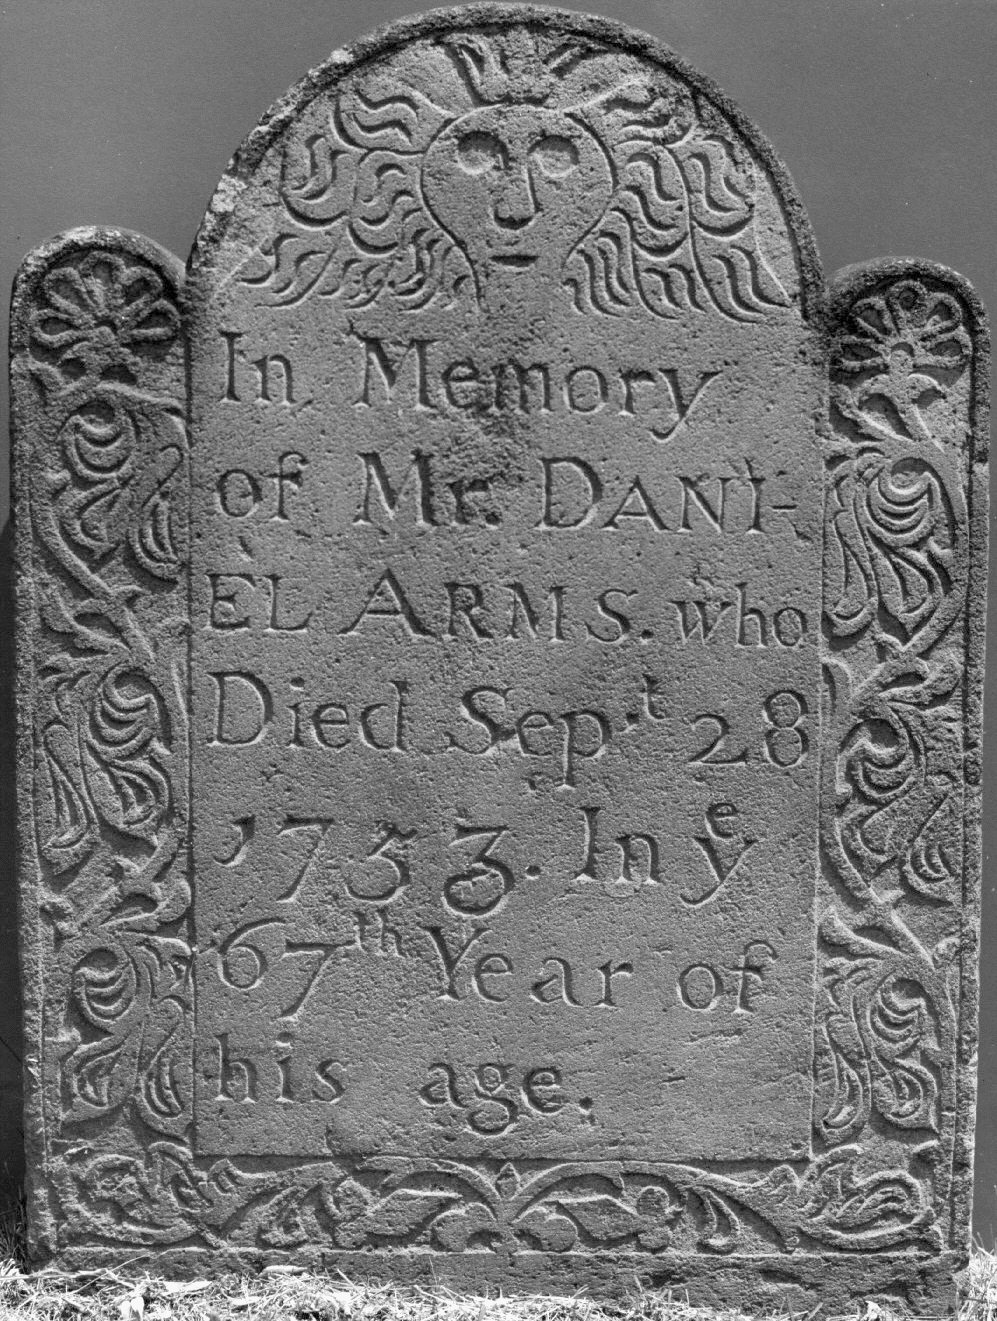 In Memory
of Mr. DANI-
EL ARMS. who
Died Sep.t 28
1733. In ye
67th Year of
his age.